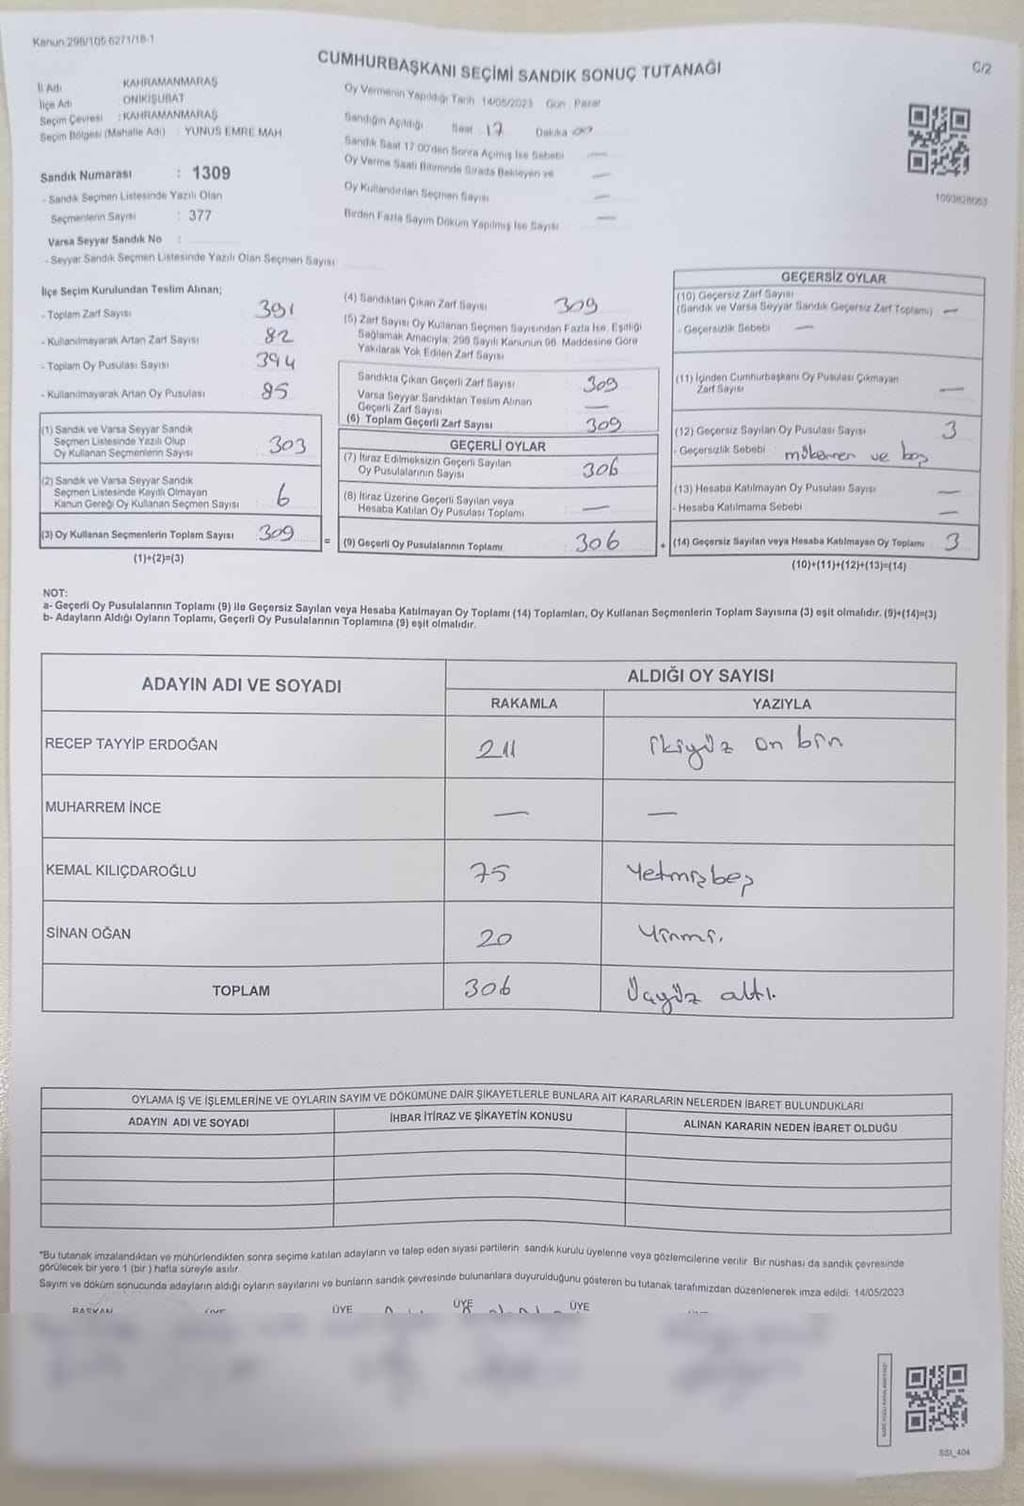 Kanun:298/105-6271/18-1
CUMHURBAŞKANI SEÇİMİ SANDIK SONUÇ TUTANAĞI
C/2
İl Adı KAHRAMANMARAŞ
İlçe Adı ONİKİŞUBAT
Seçim Çevresi : KAHRAMANMARAŞ
Seçim Bölgesi (Mahalle Adı) : YUNUS EMRE MAH
Sandık Numarası : 1309
- Sandık Seçmen Listesinde Yazılı Olan
Seçmenlerin Sayısı : 377
Varsa Seyyar Sandık No :
- Seyyar Sandık Seçmen Listesinde Yazılı Olan Seçmen Sayısı
Oy Vermenin Yapıldığı Tarih 14/05/2023 Gün : Pazar
Sandığın Açıldığı Saat 17 Dakika
Sandık Saat 17:00'den Sonra Açılmış İse Sebebi —
Oy Verme Saati Bitiminde Sırada Bekleyen ve —
Oy Kullandırılan Seçmen Sayısı —
Birden Fazla Sayım Döküm Yapılmış İse Sayısı —
1093828063
İlçe Seçim Kurulundan Teslim Alınan;
- Toplam Zarf Sayısı 391
- Kullanılmayarak Artan Zarf Sayısı 82
- Toplam Oy Pusulası Sayısı 394
- Kullanılmayarak Artan Oy Pusulası 85
(1) Sandık ve Varsa Seyyar Sandık
Seçmen Listesinde Yazılı Olup
Oy Kullanan Seçmenlerin Sayısı 303
(2) Sandık ve Varsa Seyyar Sandık
Seçmen Listesinde Kayıtlı Olmayan
Kanun Gereği Oy Kullanan Seçmen Sayısı 6
(3) Oy Kullanan Seçmenlerin Toplam Sayısı 309
(1)+(2)=(3)
(4) Sandıktan Çıkan Zarf Sayısı 309
(5) Zarf Sayısı Oy Kullanan Seçmen Sayısından Fazla İse, Eşitliği
Sağlamak Amacıyla; 298 Sayılı Kanunun 98. Maddesine Göre
Yakılarak Yok Edilen Zarf Sayısı
Sandıkta Çıkan Geçerli Zarf Sayısı 309
Varsa Seyyar Sandıktan Teslim Alınan
Geçerli Zarf Sayısı —
(6) Toplam Geçerli Zarf Sayısı 309
GEÇERLİ OYLAR
(7) İtiraz Edilmeksizin Geçerli Sayılan
Oy Pusulalarının Sayısı 306
(8) İtiraz Üzerine Geçerli Sayılan veya
Hesaba Katılan Oy Pusulası Toplamı —
= (9) Geçerli Oy Pusulalarının Toplamı 306
GEÇERSİZ OYLAR
(10) Geçersiz Zarf Sayısı
(Sandık ve Varsa Seyyar Sandık Geçersiz Zarf Toplamı) —
- Geçersizlik Sebebi —
(11) İçinden Cumhurbaşkanı Oy Pusulası Çıkmayan
Zarf Sayısı —
(12) Geçersiz Sayılan Oy Pusulası Sayısı 3
- Geçersizlik Sebebi mükerrer ve boş
(13) Hesaba Katılmayan Oy Pusulası Sayısı —
- Hesaba Katılmama Sebebi —
+ (14) Geçersiz Sayılan veya Hesaba Katılmayan Oy Toplamı 3
(10)+(11)+(12)+(13)=(14)
NOT:
a- Geçerli Oy Pusulalarının Toplamı (9) ile Geçersiz Sayılan veya Hesaba Katılmayan Oy Toplamı (14) Toplamları, Oy Kullanan Seçmenlerin Toplam Sayısına (3) eşit olmalıdır. (9)+(14)=(3)
b- Adayların Aldığı Oyların Toplamı, Geçerli Oy Pusulalarının Toplamına (9) eşit olmalıdır.
ADAYIN ADI VE SOYADI ALDIĞI OY SAYISI
RAKAMLA YAZIYLA
RECEP TAYYİP ERDOĞAN 211 ikiyüz on bir
MUHARREM İNCE — —
KEMAL KILIÇDAROĞLU 75 Yetmişbeş
SİNAN OĞAN 20 Yirmi.
TOPLAM 306 Üçyüz altı.
OYLAMA İŞ VE İŞLEMLERİNE VE OYLARIN SAYIM VE DÖKÜMÜNE DAİR ŞİKAYETLERLE BUNLARA AİT KARARLARIN NELERDEN İBARET BULUNDUKLARI
ADAYIN ADI VE SOYADI İHBAR İTİRAZ VE ŞİKAYETİN KONUSU ALINAN KARARIN NEDEN İBARET OLDUĞU
"Bu tutanak imzalandıktan ve mühürlendikten sonra seçime katılan adayların ve talep eden siyasi partilerin sandık kurulu üyelerine veya gözlemcilerine verilir. Bir nüshası da sandık çevresinde
görülecek bir yere 1 (bir) hafta süreyle asılır.
Sayım ve döküm sonucunda adayların aldığı oyların sayılarını ve bunların sandık çevresinde bulunanlara duyurulduğunu gösteren bu tutanak tarafımızdan düzenlenerek imza edildi. 14/05/2023
BAŞKAN ÜYE ÜYE ÜYE ÜYE
SSI_404